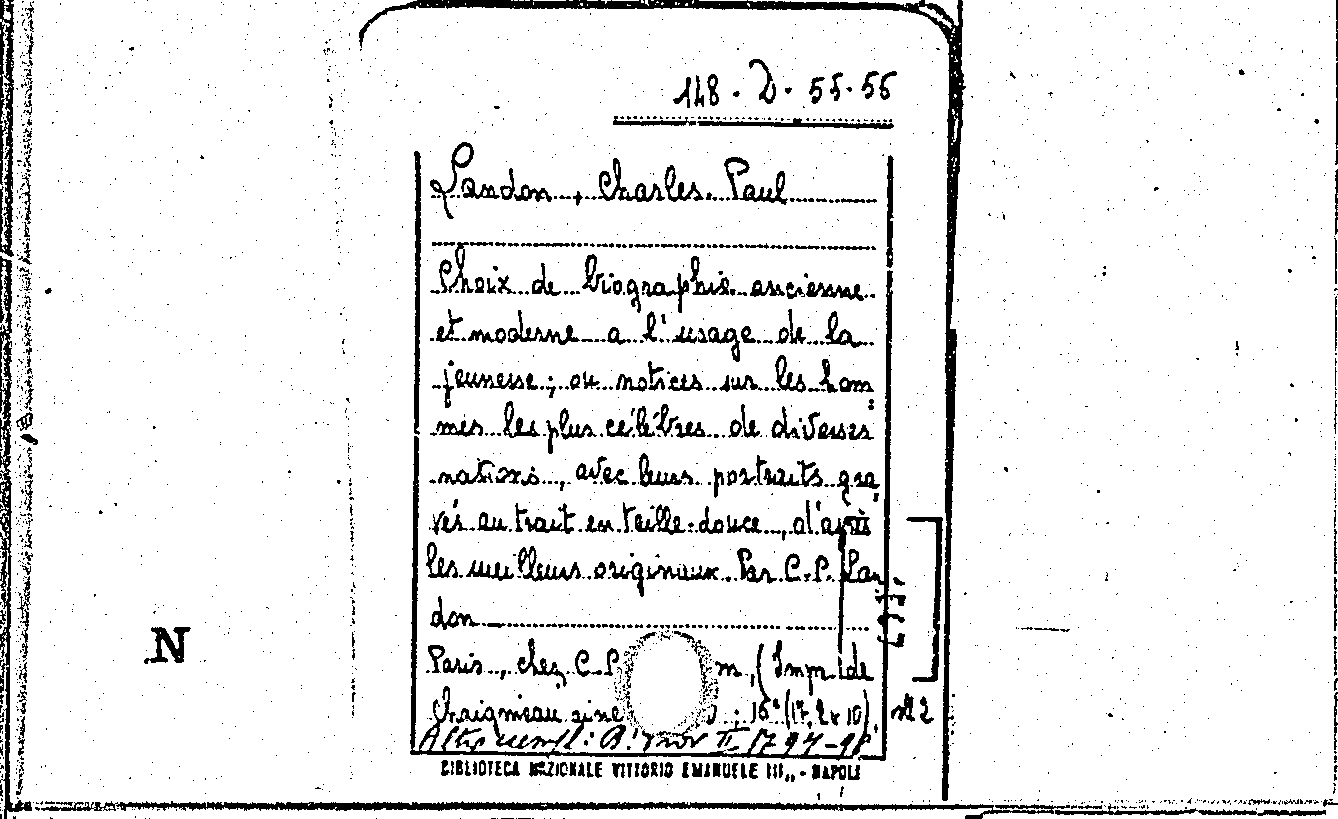 148. D. 55-56
Landon, Charles-Paul
Choix de biographie ancienne
et moderne a l'usage de la
jeunesse; ou notices sur les hom=
mes les plus célébres de diverses
nations, avec leurs portraits gra,
vés au trait en taille-douce, d'après
les meilleurs originaux. Par C.-P. Lan
don
Paris, chez C.P. m, (Impr. de
Chaigneau aine 16° (17,2x10).
N
Altro esempl: B. Prov II 1794-95
BIBLIOTECA NAZIONALE VITTORIO EMANUELE III,, - NAPOLI